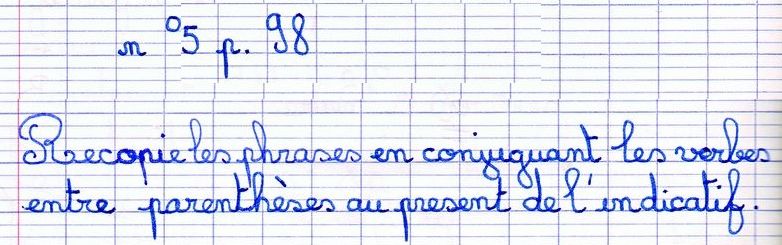 n°5 p. 98
Recopie les phrases en conjuguant les verbes
entre parenthèses au present de l'indicatif.